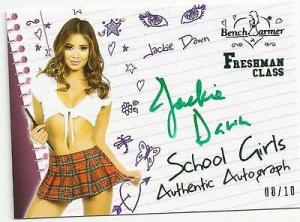 Jackie Dawn
BenchWarmer
FRESHMAN
CLASS
Jackie
Dawn
School Girls
Authentic Autograph
08/10